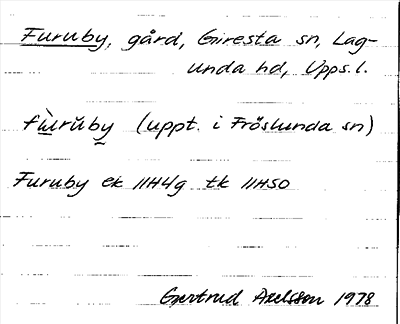 Furuby, gård, Giresta sn, Lag-
unda hd, Upps.l.
fùrŭby (uppt. i Fröslunda sn)
Furuby ek 11H4g tk 11H50
Gertrud Axelsson 1978